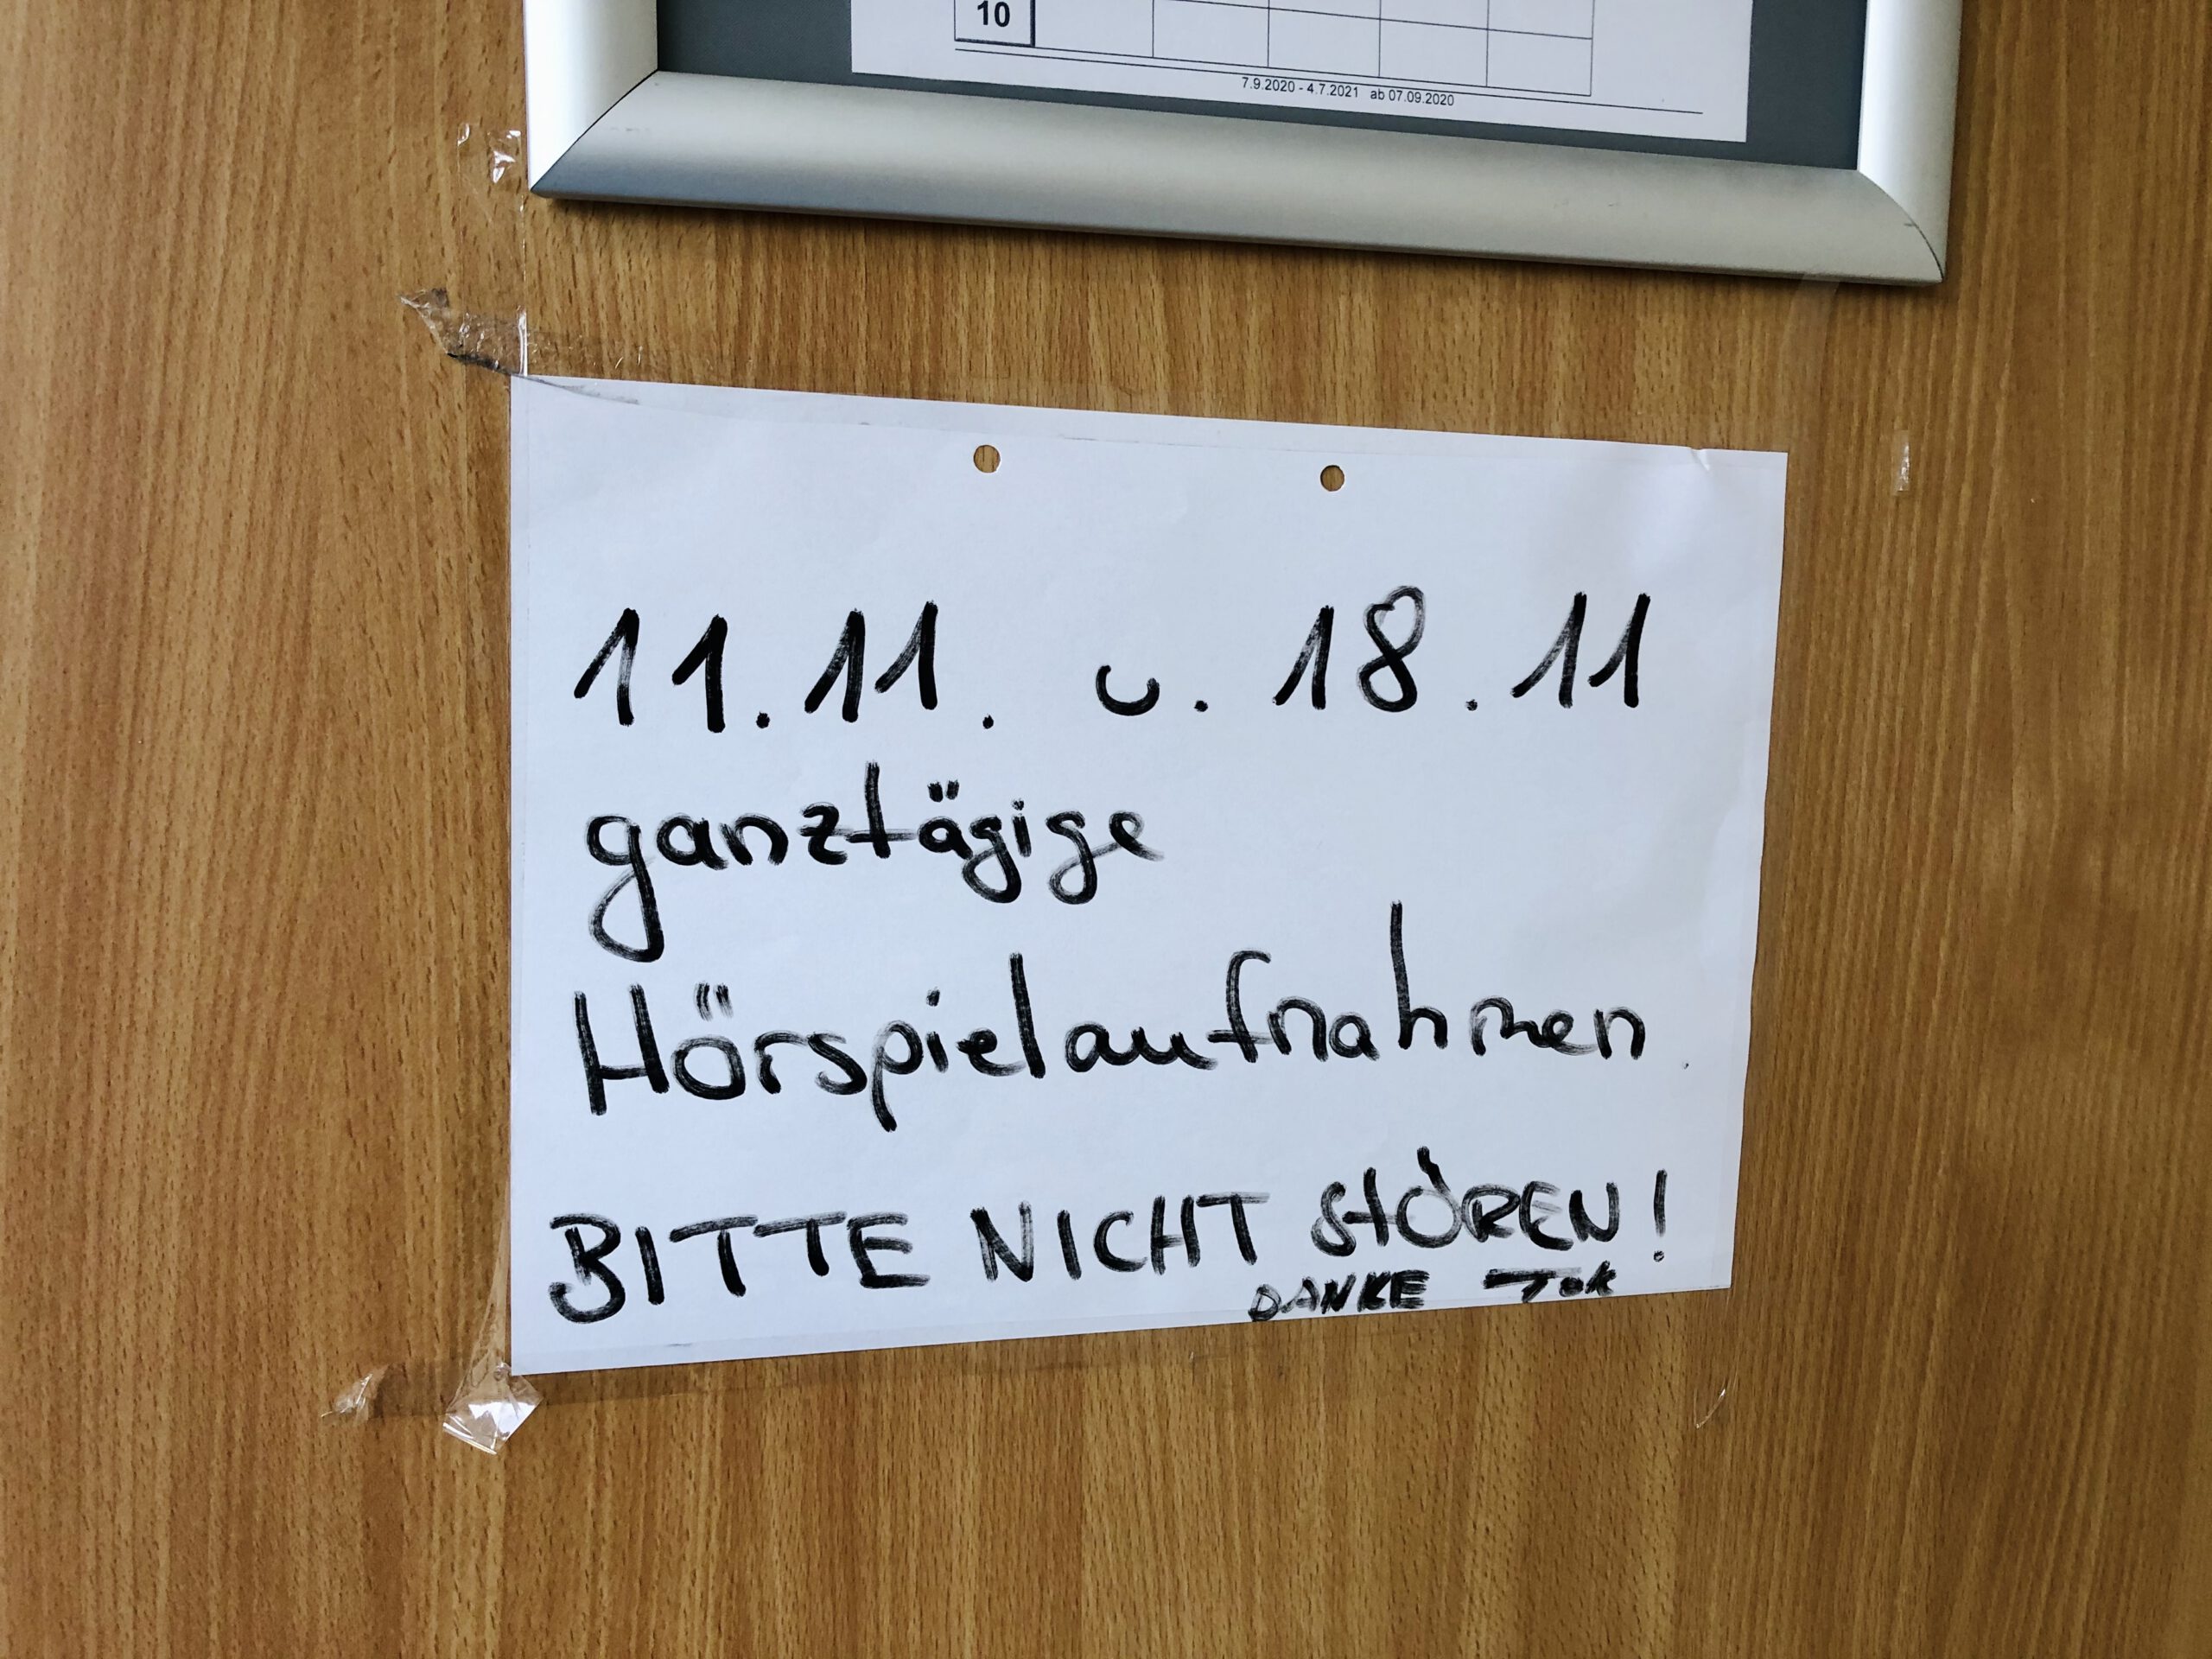 10
7.9.2020 - 4.7.2021 ab 07.09.2020
11.11. u. 18.11
ganztägige
Hörspielaufnahmen
BITTE NICHT STÖREN!
DANKE